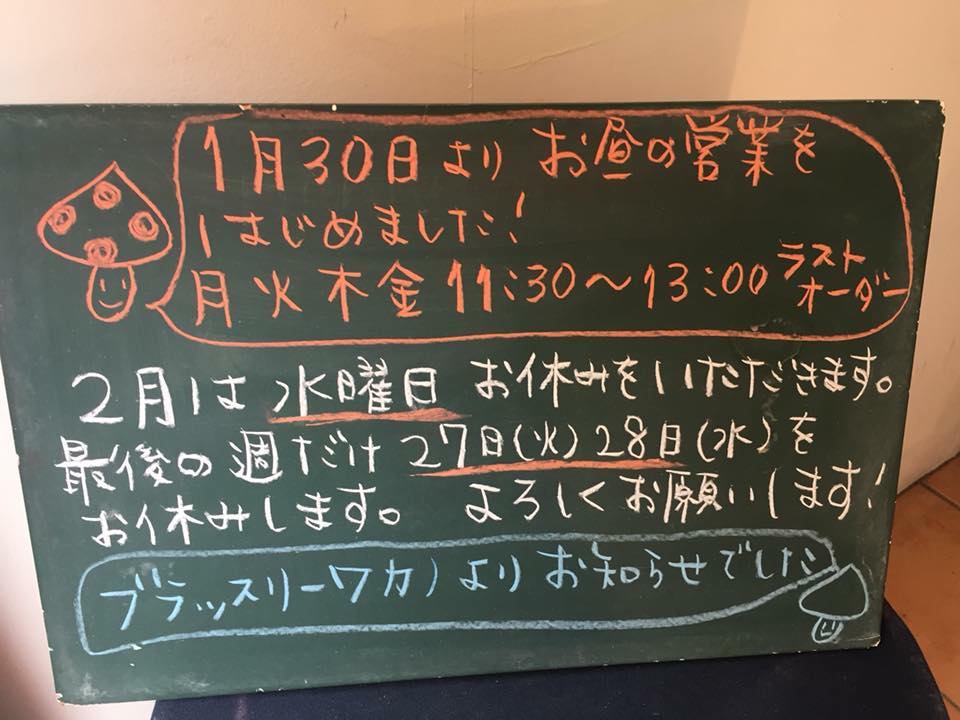 1月30日より お昼の営業を
はじめました!
月火木金 11:30〜13:00 ラスト
オーダー
2月は 水曜日 お休みをいただきます。
最後の週だけ 27日(火) 28日(水)を
お休みします。 よろしくお願いします!
ブラッスリーワカノよりお知らせでした